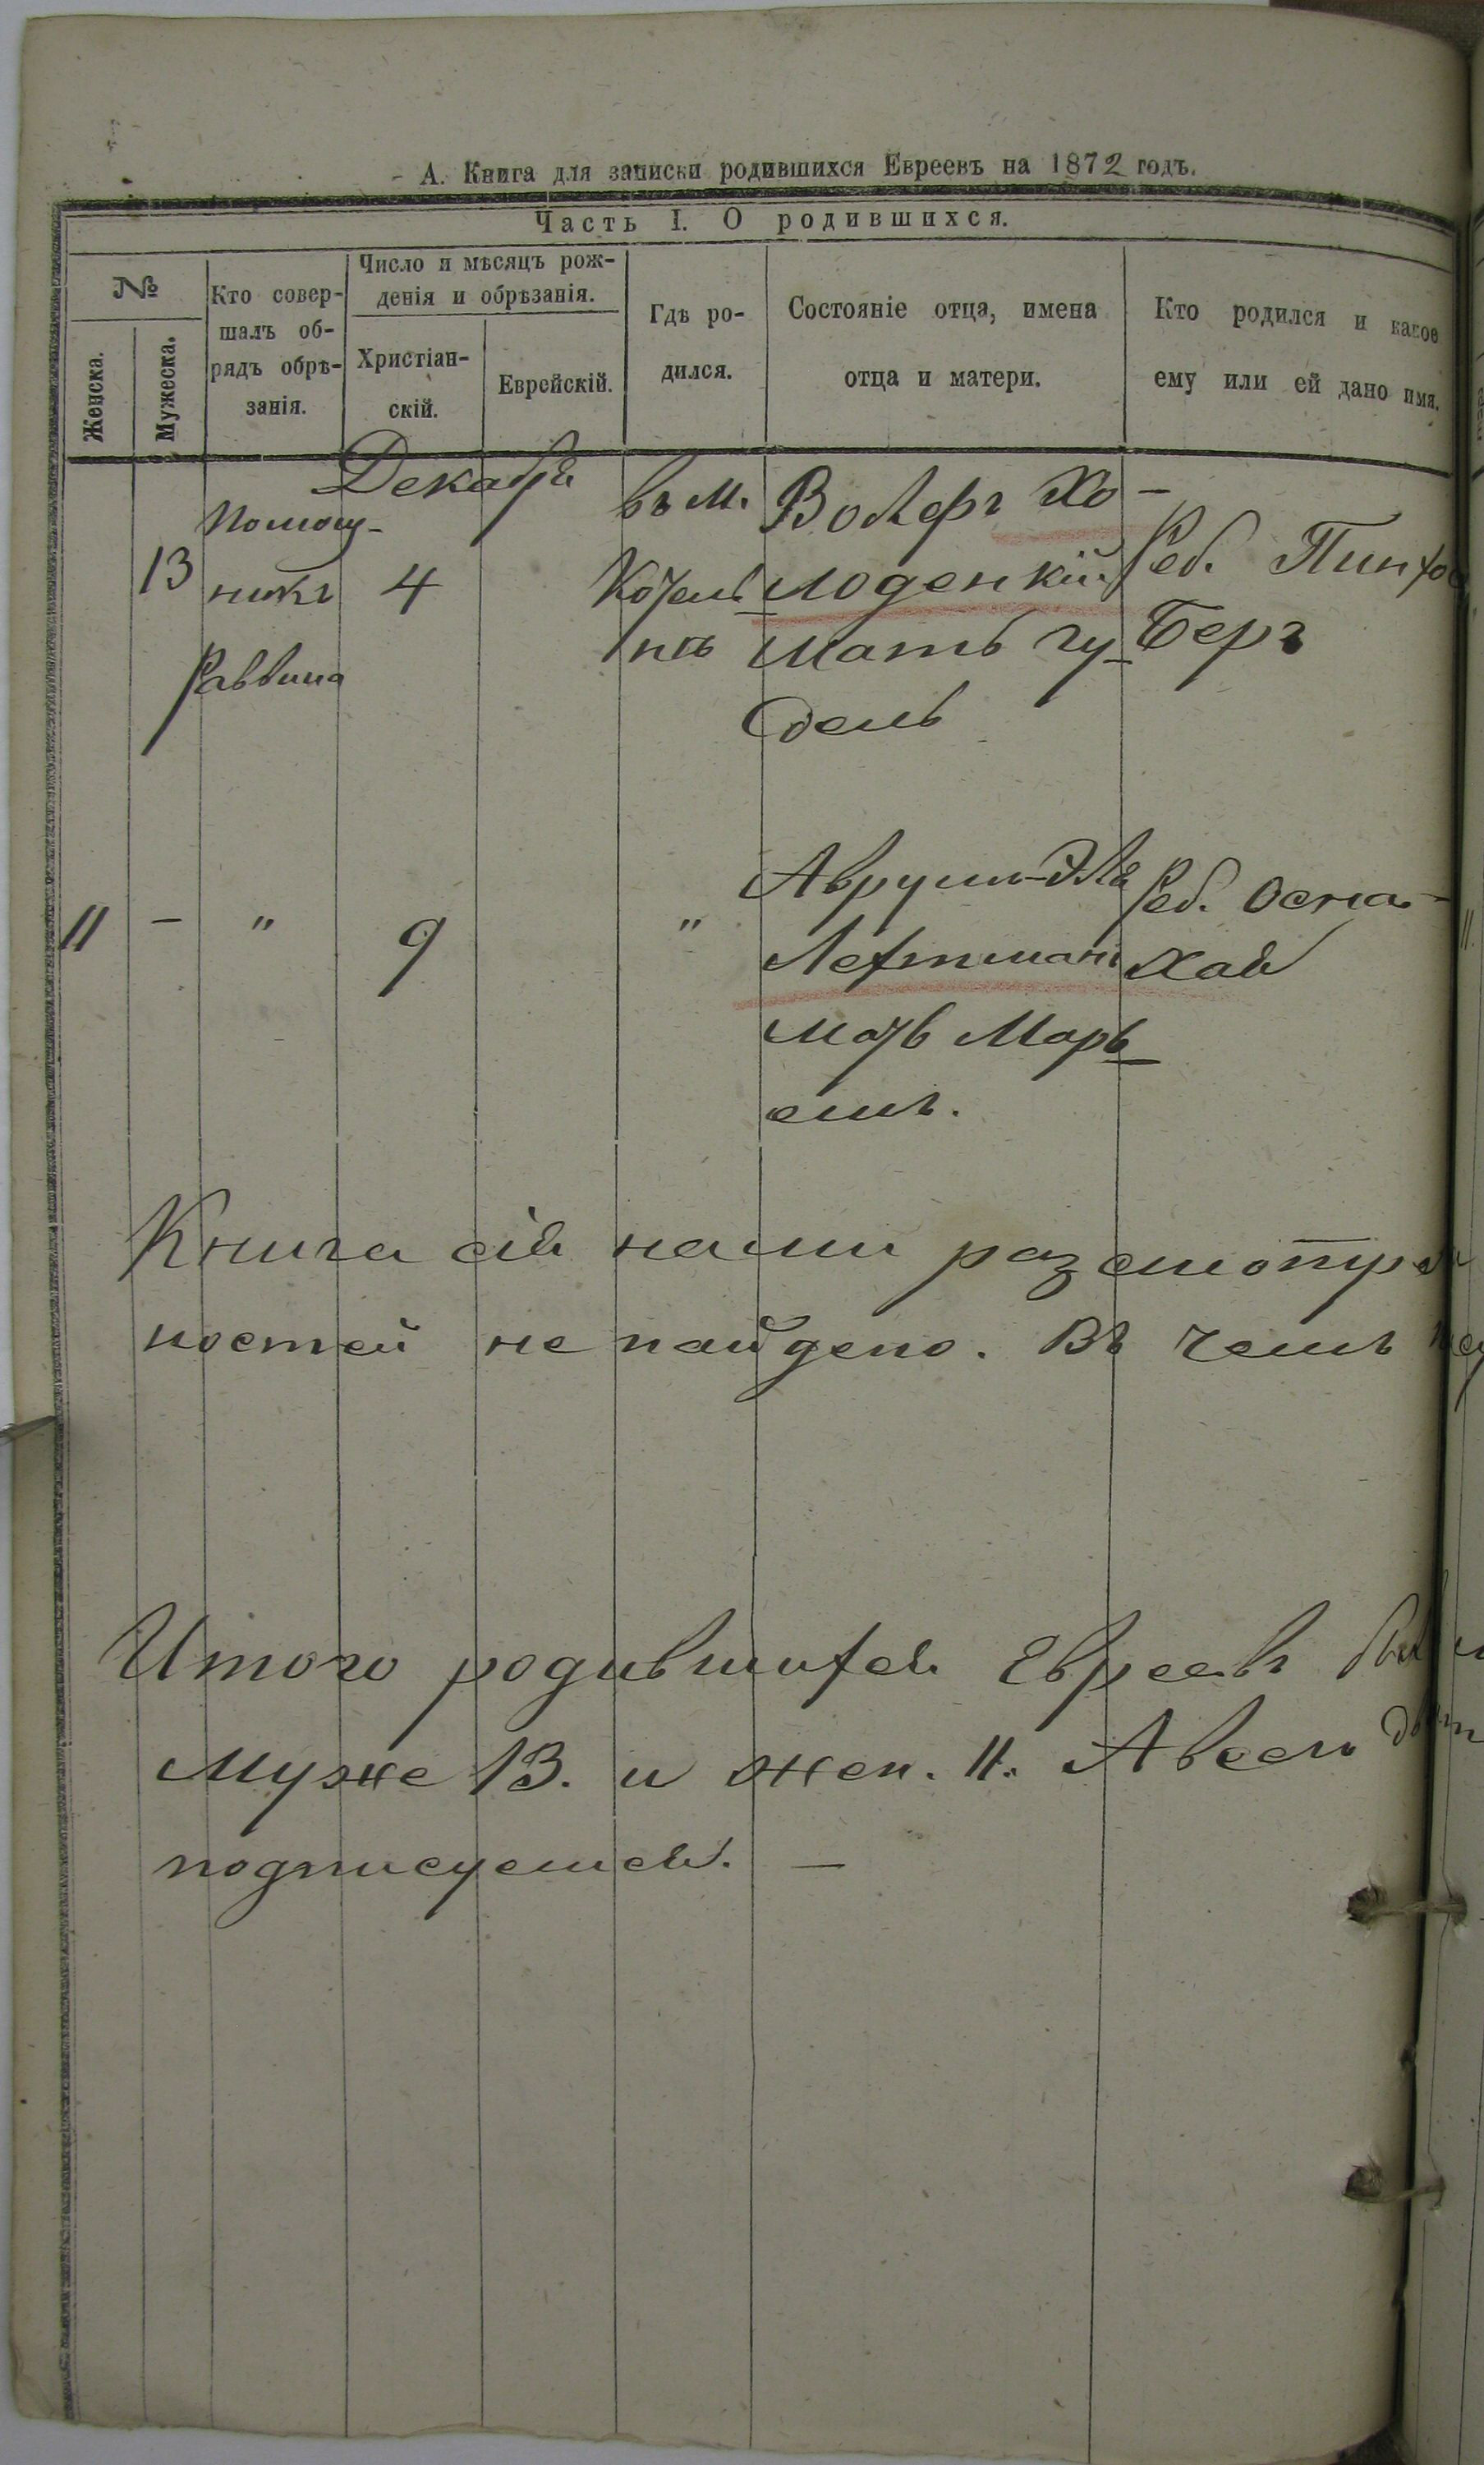 А. Книга для записки родившихся Евреевъ на 1872 годъ.
Часть I. О родившихся.
№
Женска.
Мужеска.
Кто совер-
шалъ об-
рядъ обрѣ-
занія.
Число и мѣсяцъ рож-
денія и обрѣзанія.
Христіан-
скій.
Еврейскій.
Гдѣ ро-
дился.
Состояніе отца, имена
отца и матери.
Кто родился и какое
ему или ей дано имя.
Декабря
13
Помощ-
никъ
Раввина
4
въ м.
Вольфъ Хо-
лоденкій
мать Гу-
дель
Реб. Пинхос
Беръ
11
-
"
9
"
Аврумъ-Эля
Лехтманъ
мать Марь-
емъ.
Реб. Осна-
Хая
Книга сія нами разсмотрена
ностей не найдено. Въ чемъ
Итого родившихся Евреевъ
Муже 13. и жен. 11. А всего
подписуемся. —